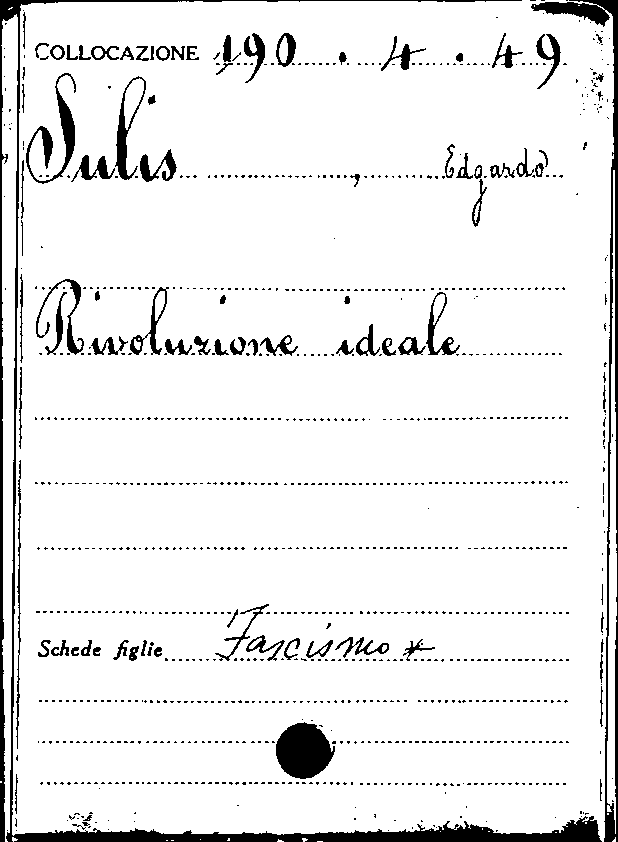 COLLOCAZIONE 190 . 4 . 49
Sulis , Edgardo
Rivoluzione ideale
Schede figlie Fascismo *